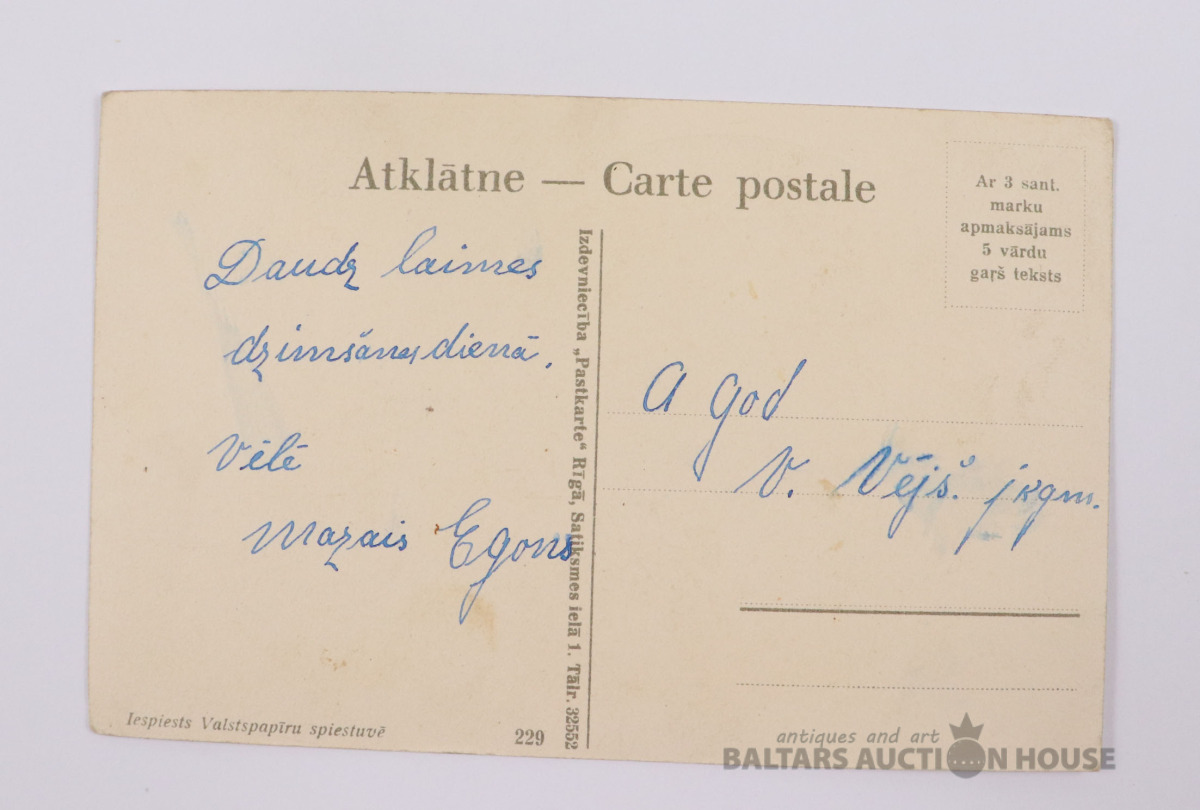 Atklātne — Carte postale
Ar 3 sant.
marku
apmaksājams
5 vārdu
gaŗš teksts
Daudz laimes
dzimšanas dienā,
vēlē
Mazais Egons
Izdevniecība „Pastkarte“ Rīgā, Satiksmes ielā 1. Tālr. 32552
A god
V. Vējš. jkgm.
Iespiests Valstspapīru spiestuvē
229
antiques and art
BALTARS AUCTION HOUSE